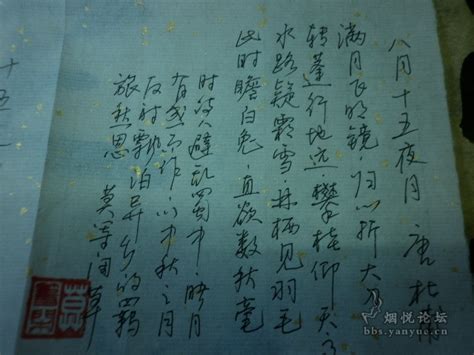 八月十五夜月 唐 杜甫
满月飞明镜，归心折大刀
转蓬行地远，攀桂仰天高
水路疑霜雪，林栖见羽毛
此时瞻白兔，直欲数秋毫
时诗人避乱蜀中，睹月
有感而作，以中秋之月
反衬飘泊异乡的羁
旅秋思
十五
烟悦论坛
bbs.yanyue.cn